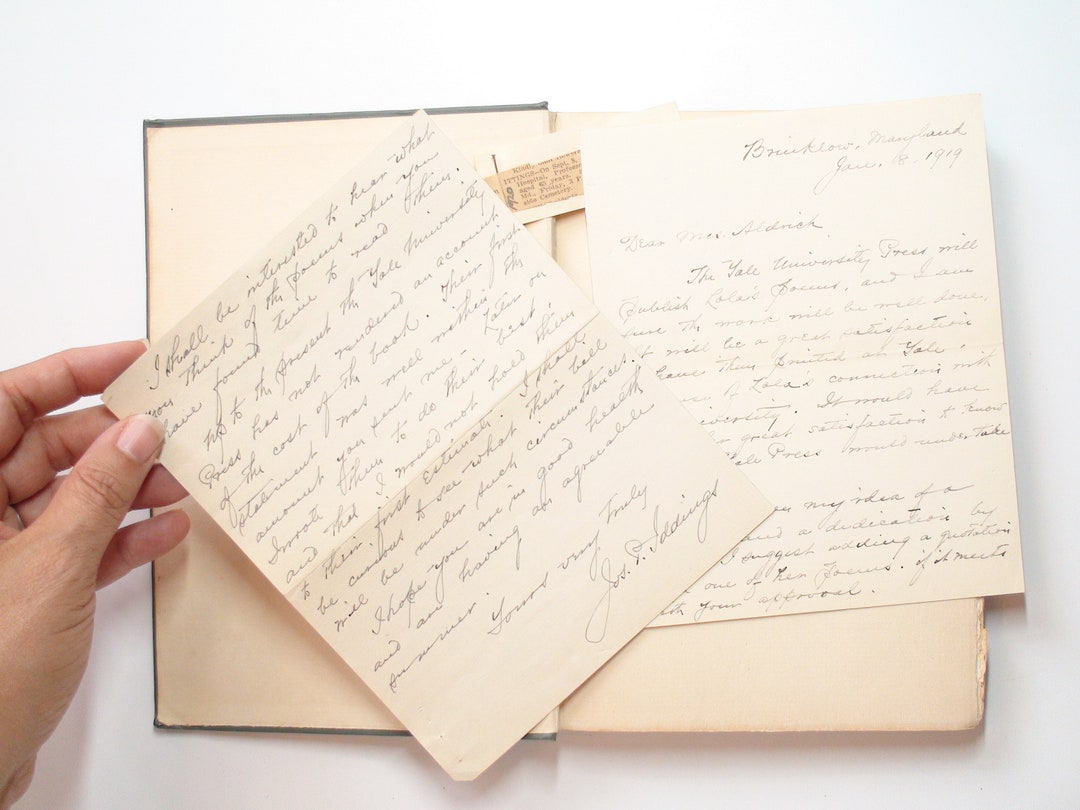 I shall be interested to hear what
you think of the poems when you
have found time to read them.
Up to the present the Yale University
Press has not rendered an account
of the cost of the book. Their first
statement was well within the
amount you sent me. Later on
I wrote them to do their best,
and that I would not hold them
to their first Estimate. I shall
be curious to see what their bill
will be under such circumstances.
I hope you are in good health
and are having an agreeable
summer.
Yours very truly
Jos. P. Iddings
KISSI,
ITTINGS—On Sept. 8,
Hospital, Professor
aged 63 years,
Md., Friday, 2 P
side Cemetery.
1920
Brinklow, Maryland
Jan. 8. 1919
Dear Mrs. Aldrich,
The Yale University Press will
publish Lola's Poems, and I am
sure the work will be well done.
It will be a great satisfaction
have them printed at Yale,
of Lola's connection with
versity. It would have
great satisfaction to know
Yale Press would undertake
you my idea of a
and a dedication by
I suggest adding a quotation
one of her Poems. if it meets
with your approval.